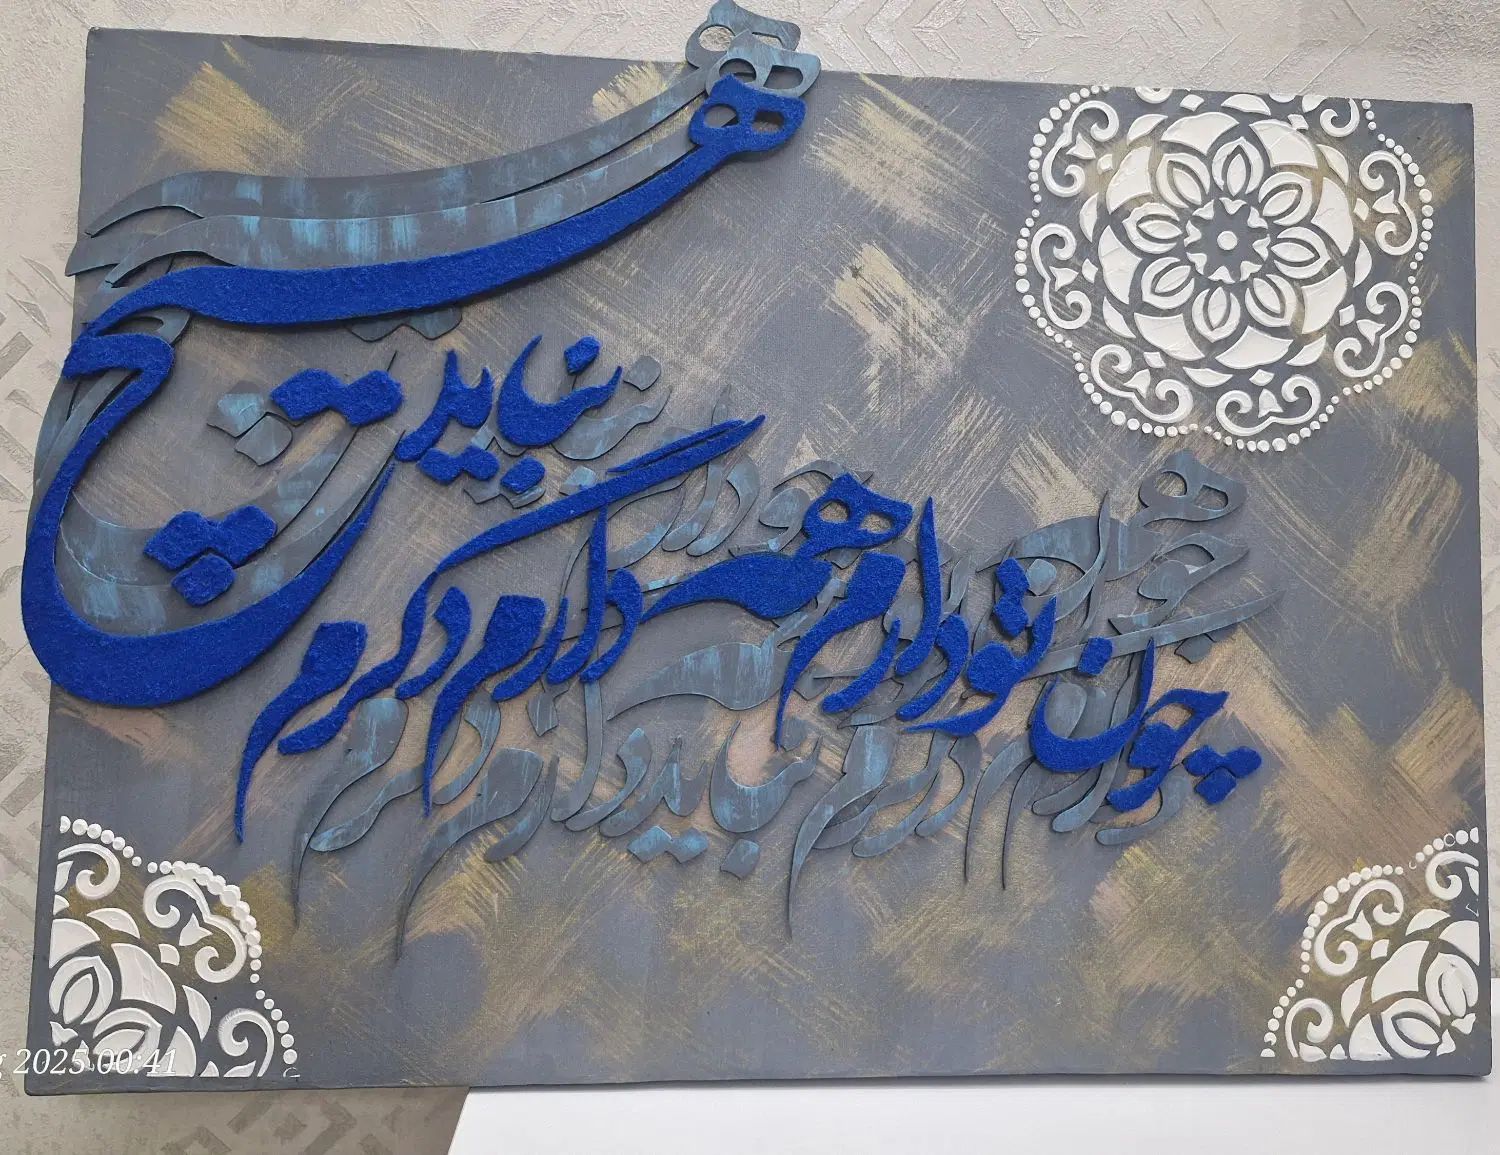 چون تو دارم همه دارم دگرم هیچ نباید
2025 00:41